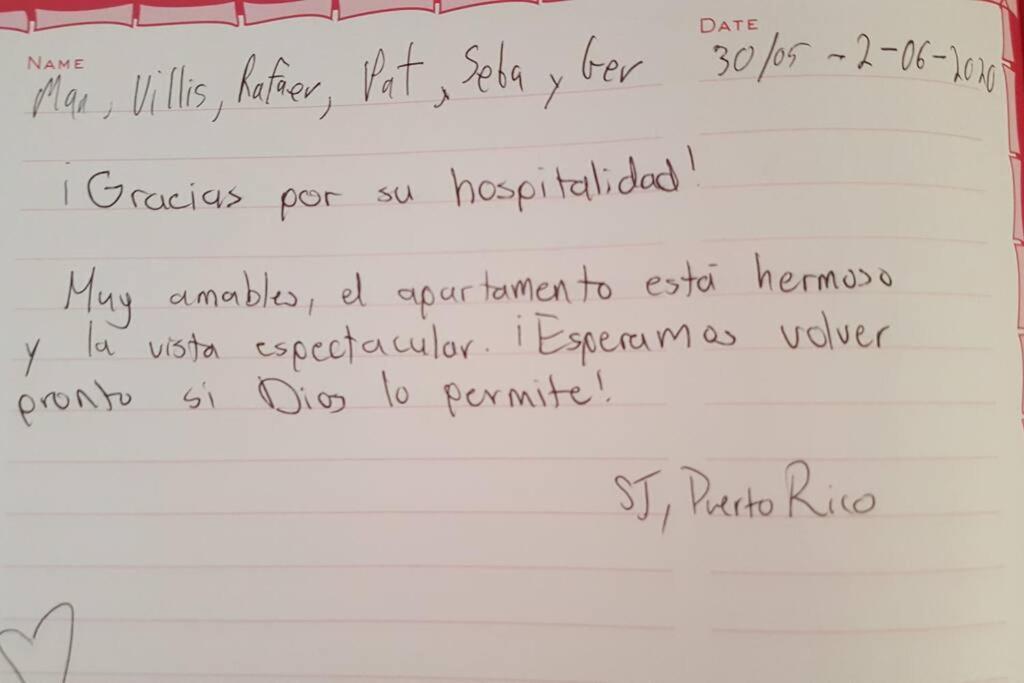 NAME
Man, Villis, Rafaer, Pat, Seba y Ger
DATE
30/05 - 2-06-2020
¡Gracias por su hospitalidad!
Muy amables, el apartamento está hermoso
y la vista espectacular. ¡Esperamos volver
pronto si Dios lo permite!
SJ, Puerto Rico